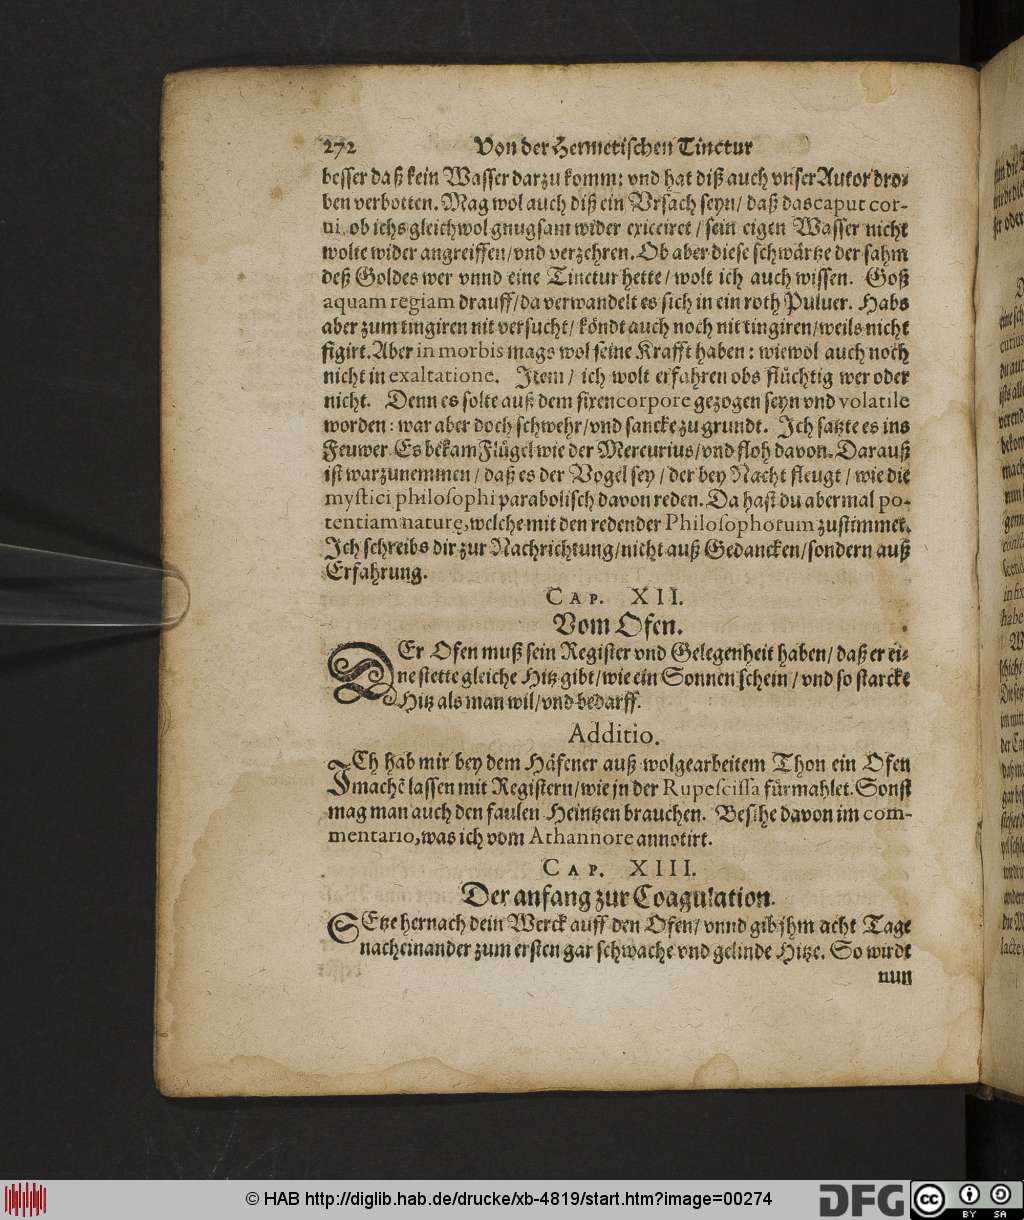 272 Von der Hermetischen Tinctur
besser daß kein Wasser darzu komm: vnd hat diß auch vnser Autor dro-
ben verbotten. Mag wol auch diß ein Vrsach seyn/ daß das caput cor-
ui, ob ichs gleichwol gnugsam wider exicciret/ sein eigen Wasser nicht
wolte wider angreiffen/vnd verzehren. Ob aber diese schwärtze der sahm
deß Goldes wer vnnd eine Tinctur hette/ wolt ich auch wissen. Goß
aquam regiam drauff/da verwandelt es sich in ein roth Puluer. Habs
aber zum tingiren nit versucht/ köndt auch noch nit tingiren/weils nicht
figirt. Aber in morbis mags wol seine Krafft haben: wiewol auch noch
nicht in exaltatione. Item/ ich wolt erfahren obs flüchtig wer oder
nicht. Denn es solte auß dem fixen corpore gezogen seyn vnd volatile
worden: war aber doch schwehr/vnd sancke zu grundt. Ich satzte es ins
Feuwer. Es bekam Flügel wie der Mercurius/vnd floh davon. Darauß
ist warzunemmen/ daß es der Vogel sey/ der bey Nacht fleugt/ wie die
mystici philosophi parabolisch davon reden. Da hast du abermal po-
tentiam naturę, welche mit den reden der Philosophorum zustimmet.
Ich schreibs dir zur Nachrichtung/nicht auß Gedancken/sondern auß
Erfahrung.
CAP. XII.
Vom Ofen.
DEr Ofen muß sein Register vnd Gelegenheit haben/ daß er ei-
ne stette gleiche Hitz gibt/wie ein Sonnenschein/ vnd so starcke
Hitz als man wil/vnd bedarff.
Additio.
ICh hab mir bey dem Häfener auß wolgearbeitem Thon ein Ofen
machẽ lassen mit Registern/wie jn der Rupescissa fürmahlet. Sonst
mag man auch den faulen Heintzen brauchen. Besihe davon im com-
mentario, was ich vom Athannore annotirt.
CAP. XIII.
Der anfang zur Coagulation.
SEtze hernach dein Werck auff den Ofen/ vnnd gib jhm acht Tage
nacheinander zum ersten gar schwache vnd gelinde Hitze. So wirdt
nun
© HAB http://diglib.hab.de/drucke/xb-4819/start.htm?image=00274
DFG
cc
BY SA